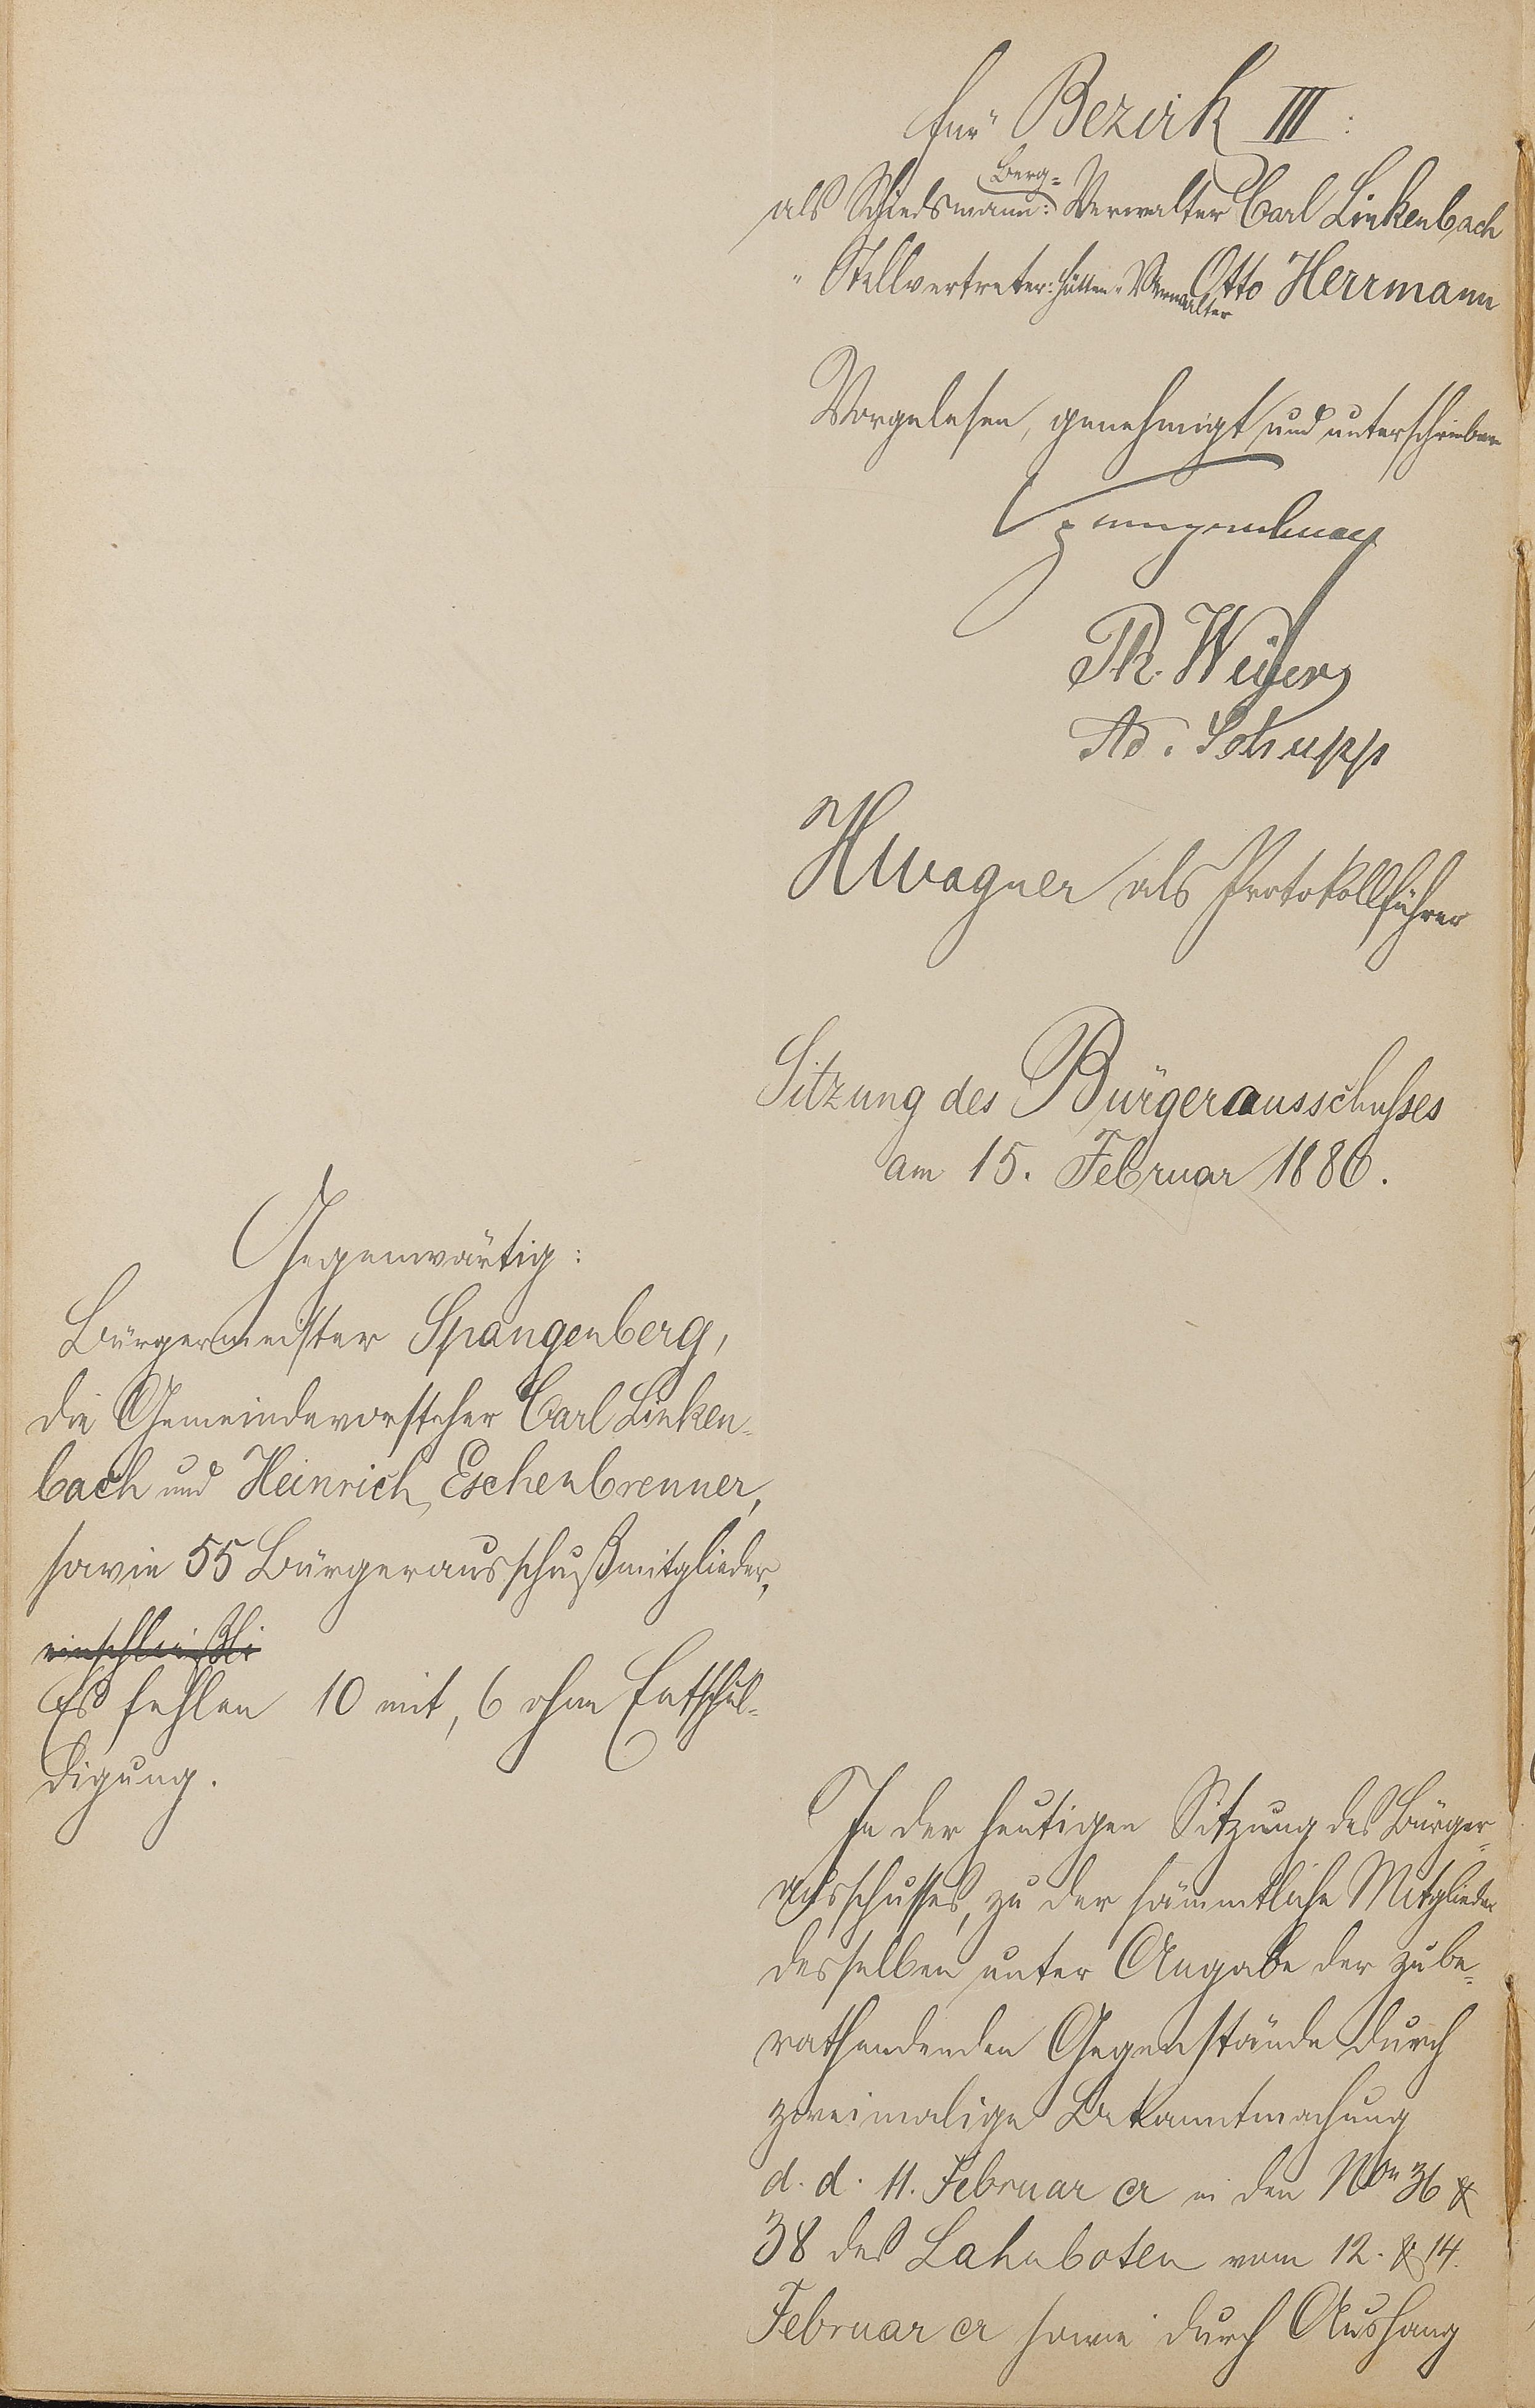 für Bezirk III:
Berg=
als Schiedsmann: Verwalter Carl Linkenbach
" Stellvertreter: Hütten-Verwalter Otto Herrmann
Vorgelesen, genehmigt und unterschrieben
Spangenberg
Th. Weyer
Ad. Schupp
HWagner als Protokollführer
Sitzung des Bürgerausschusses
am 15. Februar 1886.
Gegenwärtig:
Bürgermeister Spangenberg,
die Gemeindevorsteher Carl Linken-
bach und Heinrich Eschenbrenner,
sowie 55 Bürgerausschußmitglieder,
einschließli
Es fehlen 10 mit, 6 ohne Entschul-
digung.
In der heutigen Sitzung des Bürger-
ausschusses, zu der sämmtliche Mitglieder
desselben unter Angabe der zu be-
rathendenden Gegenstände durch
zweimalige Bekanntmachung
d. d. 11. Februar cr in den Non 36 &
38 des Lahnboten vom 12. & 14.
Februar cr sowie durch Aushang